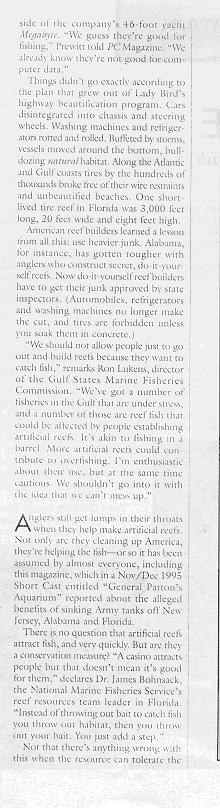 side of the company's 46-foot yacht
Megabyte. "We guess they're good for
fishing," Prewitt told PC Magazine. "We
already know they're not good for com-
puter data."
Things didn't go exactly according to
the plan that grew out of Lady Bird's
highway beautification program. Cars
disintegrated into chassis and steering
wheels. Washing machines and refriger-
ators rotted and rolled. Buffeted by storms,
vessels moved around the bottom, bull-
dozing natural habitat. Along the Atlantic
and Gulf coasts tires by the hundreds of
thousands broke free of their wire restraints
and unbeautified beaches. One short-
lived tire reef in Florida was 3,000 feet
long, 20 feet wide and eight feet high.
American reef builders learned a lesson
from all this: use heavier junk. Alabama,
for instance, has gotten tougher with
anglers who construct secret, do-it-your-
self reefs. Now do-it-yourself reef builders
have to get their junk approved by state
inspectors. (Automobiles, refrigerators
and washing machines no longer make
the cut, and tires are forbidden unless
you soak them in concrete.)
"We should not allow people just to go
out and build reefs because they want to
catch fish," remarks Ron Lukens, director
of the Gulf States Marine Fisheries
Commission. "We've got a number of
fisheries in the Gulf that are under stress,
and a number of those are reef fish that
could be affected by people establishing
artificial reefs. It's akin to fishing in a
barrel. More artificial reefs could con-
tribute to overfishing. I'm enthusiastic
about their use, but at the same time
cautious. We shouldn't go into it with
the idea that we can't mess up."
Anglers still get lumps in their throats
when they help make artificial reefs.
Not only are they cleaning up America,
they're helping the fish—or so it has been
assumed by almost everyone, including
this magazine, which in a Nov/Dec 1995
Short Cast entitled "General Patton's
Aquarium" reported about the alleged
benefits of sinking Army tanks off New
Jersey, Alabama and Florida.
There is no question that artificial reefs
attract fish, and very quickly. But are they
a conservation measure? "A casino attracts
people but that doesn't mean it's good
for them," declares Dr. James Bohnsack,
the National Marine Fisheries Service's
reef resources team leader in Florida.
"Instead of throwing out bait to catch fish
you throw out habitat, then you throw
out your bait. You just add a step."
Not that there's anything wrong with
this when the resource can tolerate the